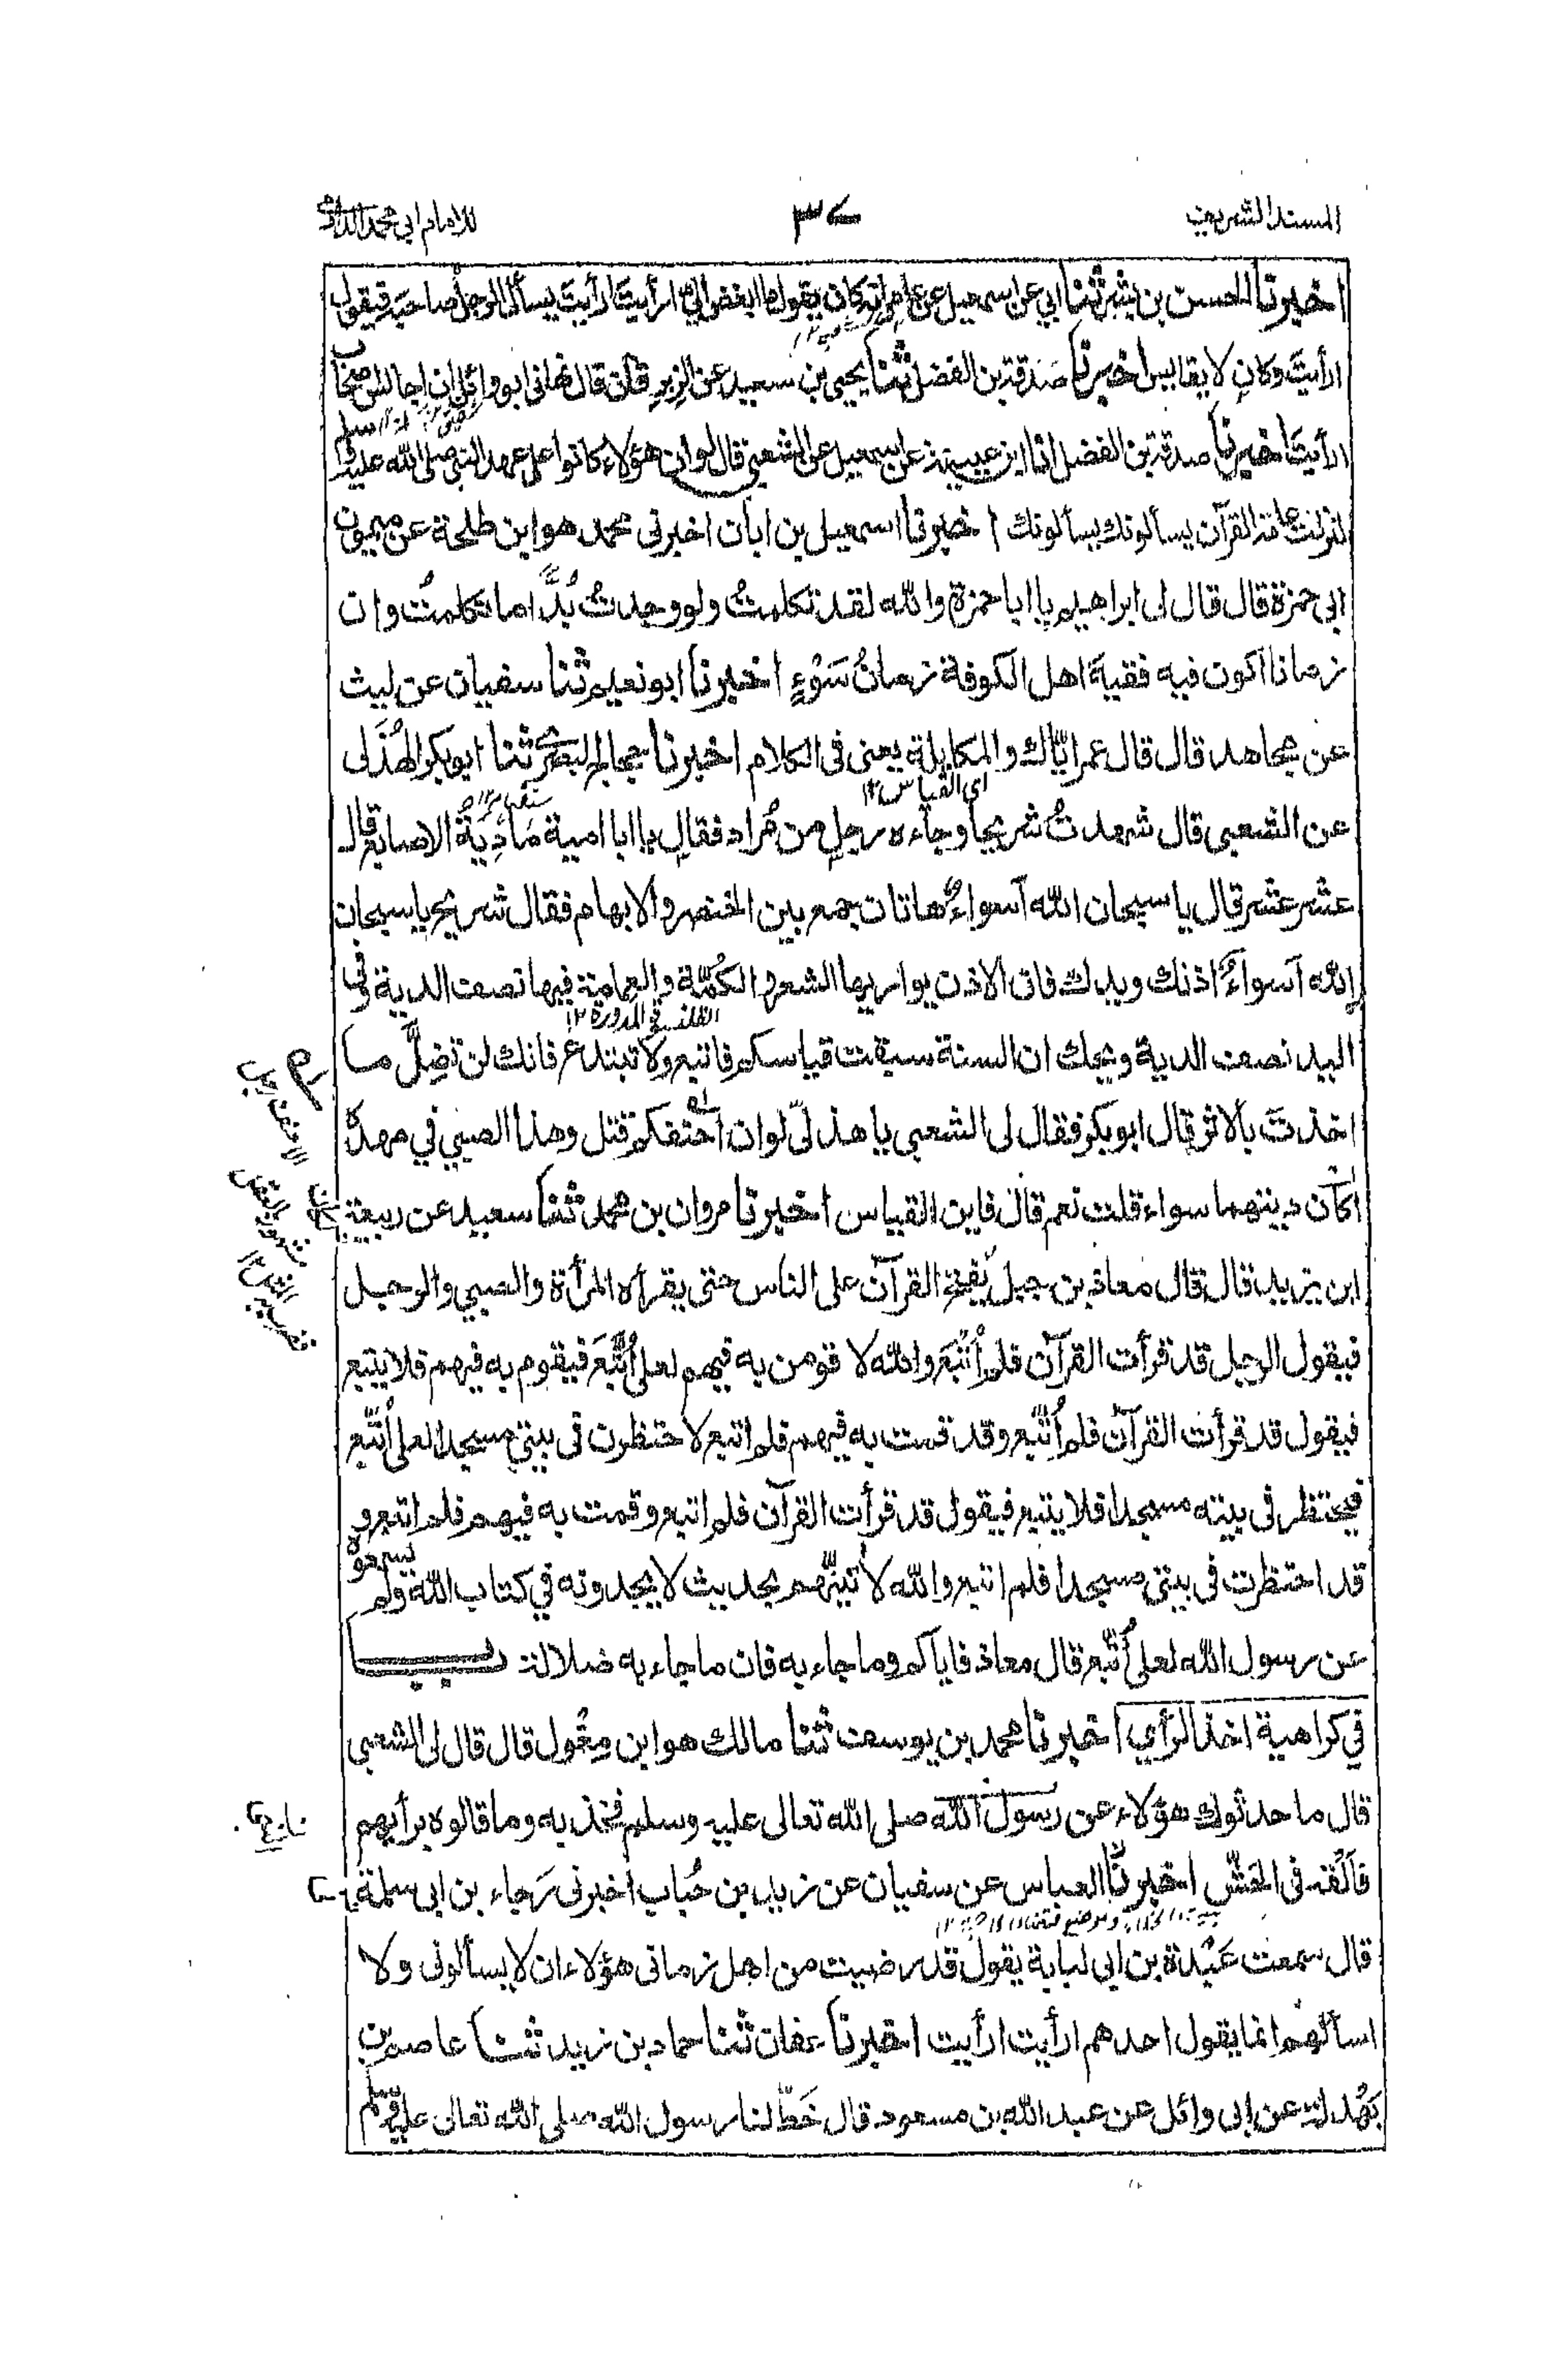 المسند الشريف
٣٧
للامام ابي محمد الدارمي
اخبرنا الحسن بن بشر ثنا ابي عن اسمعيل عن عامر انه كان يقول ما ابغض الي ارأيت ارأيت يسأل الرجل صاحبه فيقول
ارأيت وكان لا يقايس اخبرنا صدقة بن الفضل ثنا يحيى بن سعيد عن الزبرقان قال نهاني ابو وائل ان اجالس اصحاب
ارأيت اخبرنا صدقة بن الفضل انا ابن عيينة عن اسمعيل عن الشعبي قال لو ان هؤلاء كانوا على عهد النبي صلى الله عليه وسلم
لنزلت عامة القرآن يسألونك يسألونك اخبرنا اسمعيل بن ابان اخبرني محمد هو ابن طلحة عن ميمون
ابي حمزة قال قال لي ابراهيم يا ابا حمزة والله لقد تكلمتُ ولو وجدتُ بُدًّا ما تكلمتُ وان
زمانا اكون فيه فقيهَ اهل الكوفة زمانُ سَوْءٍ اخبرنا ابو نعيم ثنا سفيان عن ليث
عن مجاهد قال قال عمر اياك والمكايلة يعني في الكلام اخبرنا حجاج البصري ثنا ابو بكر الهُذَلي
اي القياس ١٢
عن الشعبي قال شهدتُ شريحا وجاءه رجل من مُراد فقال يا ابا امية مَا دِيَةُ الاصابع قال
عشر عشر قال يا سبحان الله آسواءٌ هاتان جمع بين الخنصر والابهام فقال شريح يا سبحان
الله آسواءٌ اذنك ويدك فان الاذن يواريها الشعر و الكُمّة والعمامة فيها نصف الدية وفي
القلنسوة المدورة ١٢
اليد نصف الدية ويحك ان السنة سبقت قياسكم فاتبع ولا تبتدع فانك لن تضِلَّ ما
اخذتَ بالاثر قال ابو بكر فقال لي الشعبي يا هذلي لو ان احنفكم قتل وهذا الصبي في مهده
اكان ديتهما سواء قلت نعم قال فاين القياس اخبرنا مروان بن محمد ثنا سعيد عن ربيعة
ابن يزيد قال قال معاذ بن جبل يُفتح القرآن على الناس حتى يقرأه المرأة والصبي والرجل
فيقول الرجل قد قرأت القرآن فلم أُتَّبَع والله لا قومن به فيهم لعلي أُتَّبَع فيقوم به فيهم فلا يتبع
فيقول قد قرأت القرآن فلم أُتَّبع وقد قمت به فيهم فلم اتبع لاحتظرن في بيتي مسجدا لعلي أُتَّبع
فيحتظر في بيته مسجدا فلا يتبع فيقول قد قرأت القرآن فلم اتبع وقمت به فيهم فلم اتبع و
قد احتظرت في بيتي مسجدا فلم اتبع والله لآتينّهم بحديث لا يجدونه في كتاب الله ولم يسمعوه
عن رسول الله لعلي أُتَّبع قال معاذ فاياكم وما جاء به فان ما جاء به ضلالة باب
في كراهية اخذ الرأي اخبرنا محمد بن يوسف ثنا مالك هو ابن مِغْول قال قال لي الشعبي
قال ما حدثوك هؤلاء عن رسول الله صلى الله تعالى عليه وسلم فخذ به وما قالوه برأيهم
فأَلْقه في الحَشّ اخبرنا العباس عن سفيان عن زيد بن حُباب اخبرني رَجاء بن ابي سلمة
قال سمعت عَبْدة بن ابي لبابة يقول قد رضيت من اهل زماني هؤلاء ان لا يسألوني ولا
اسألهم انما يقول احدهم ارأيت ارأيت اخبرنا عفان ثنا حماد بن زيد ثنا عاصم بن
بَهْدلة عن ابي وائل عن عبد الله بن مسعود قال خَطَّ لنا رسول الله صلى الله تعالى عليه وسلم